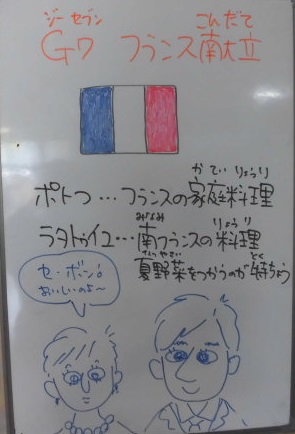 ジーセブン こんだて
G7 フランス献立
かてい りょうり
ポトフ…フランスの家庭料理
みなみ りょうり
ラタトゥイユ…南フランスの料理
なつやさい とく
夏野菜をつかうのが特ちょう
セ・ボン!
おいしいのよ〜